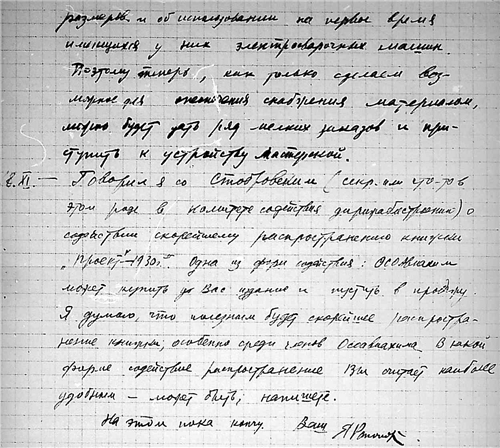 размерѣ и об использовании на первое время
имеющихся у них электросварочных машин.
Поэтому теперь, как только сделаем воз-
можное для снабжения материалом,
можно будет дать ряд мелких заказов и при-
ступить к устройству мастерской.
XI. — Говорил я со (секр. или что-то в
этом роде в комитете содействия дирижаблестроению) о
содействии скорейшему распространению книжки
„Проект 1930г." Одна из форм содействия: Осоавиахим
может купить до Вас издание и пустить в продажу.
Я думаю, что полезным будет скорейшее распростра-
нение книжки, особенно среди членов Осоавиахима. В какой
форме содействие распространение Вы считаете наиболее
удобным — может быть, напишете.
На этом пока кончу. Ваш